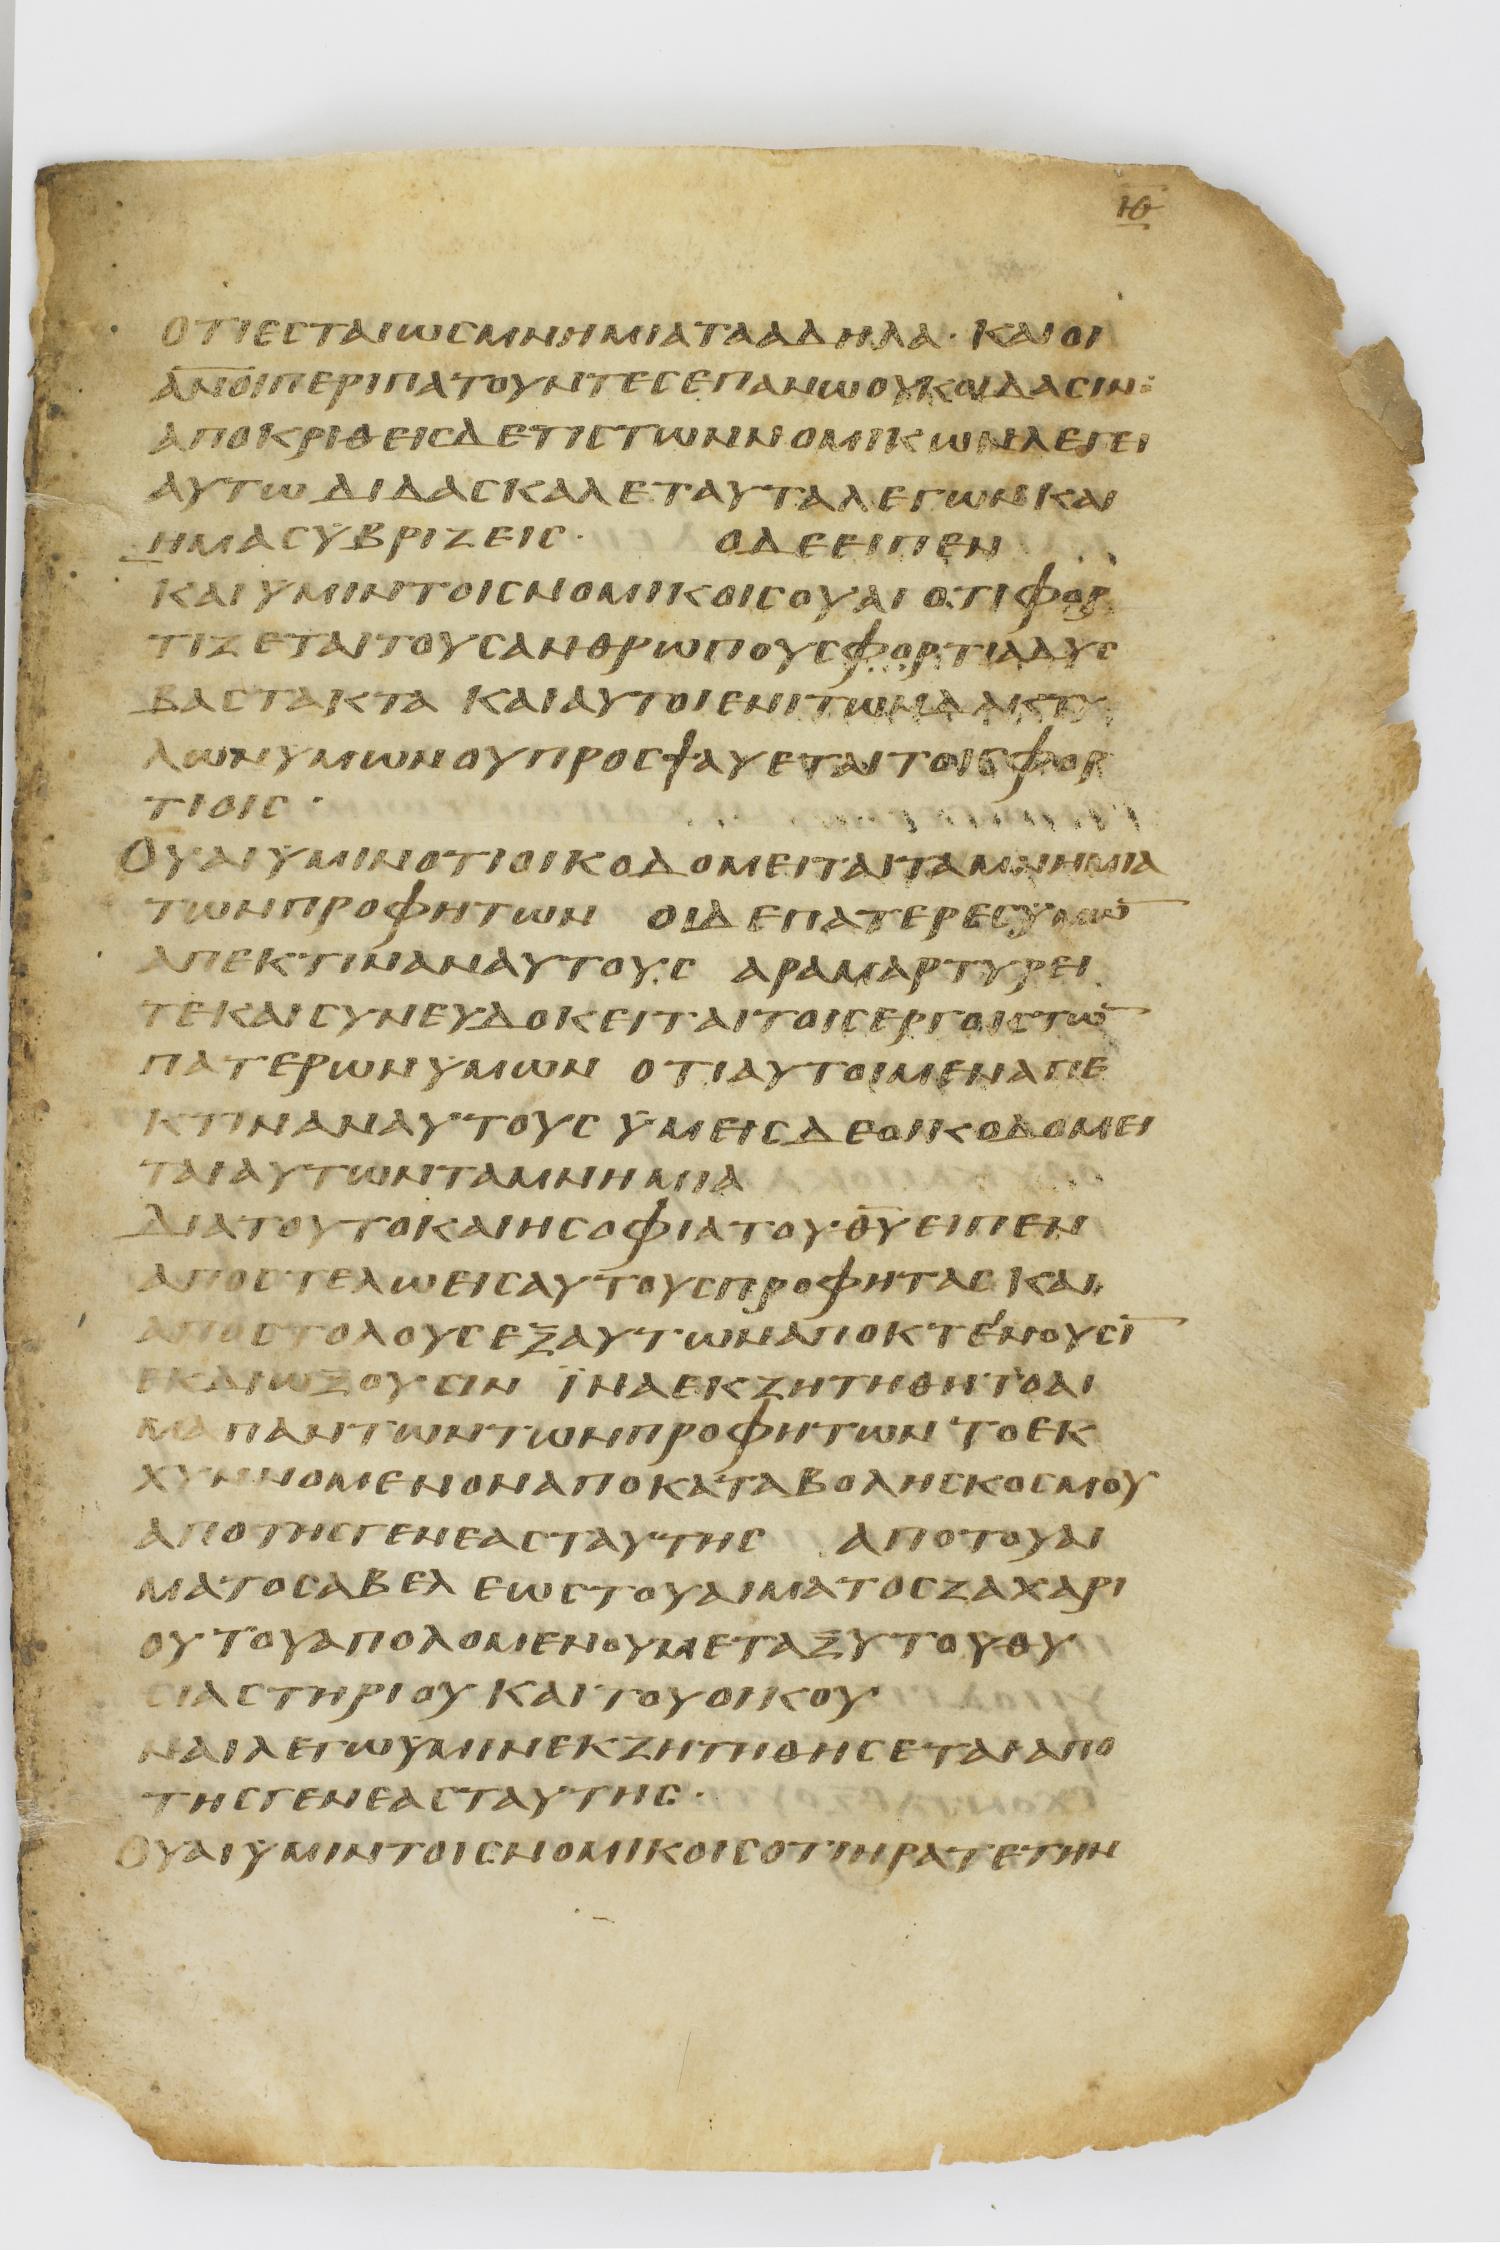 ΙΘ
ΟΤΙΕϹΤΑΙωϹΜΝΗΜΙΑΤΑΑΔΗΛΑ· ΚΑΙΟΙ
ΑΝΟΙΠΕΡΙΠΑΤΟΥΝΤΕϹΕΠΑΝωΟΥΚΟΙΔΑϹΙΝ:
ΑΠΟΚΡΙΘΕΙϹΔΕΤΙϹΤωΝΝΟΜΙΚωΝΛΕΓΕΙ
ΑΥΤωΔΙΔΑϹΚΑΛΕΤΑΥΤΑΛΕΓωΝΚΑΙ
ΗΜΑϹΥΒΡΙΖΕΙϹ· ΟΔΕΕΙΠΕΝ
ΚΑΙΥΜΙΝΤΟΙϹΝΟΜΙΚΟΙϹΟΥΑΙΟΤΙΦΟΡ
ΤΙΖΕΤΑΙΤΟΥϹΑΝΘΡωΠΟΥϹΦΟΡΤΙΑΔΥϹ
ΒΑϹΤΑΚΤΑ ΚΑΙΑΥΤΟΙΕΝΙΤωΝΔΑΚΤΥ
ΛωΝΥΜωΝΟΥΠΡΟϹΨΑΥΕΤΑΙΤΟΙϹΦΟΡ
ΤΙΟΙϹ·
ΟΥΑΙΥΜΙΝΟΤΙΟΙΚΟΔΟΜΕΙΤΑΙΤΑΜΝΗΜΙΑ
ΤωΝΠΡΟΦΗΤωΝ ΟΙΔΕΠΑΤΕΡΕϹΥΜω̅
ΑΠΕΚΤΙΝΑΝΑΥΤΟΥϹ ΑΡΑΜΑΡΤΥΡΕΙ
ΤΕΚΑΙϹΥΝΕΥΔΟΚΕΙΤΑΙΤΟΙϹΕΡΓΟΙϹΤω̅
ΠΑΤΕΡωΝΥΜωΝ ΟΤΙΑΥΤΟΙΜΕΝΑΠΕ
ΚΤΙΝΑΝΑΥΤΟΥϹΥΜΕΙϹΔΕΟΙΚΟΔΟΜΕΙ
ΤΑΙΑΥΤωΝΤΑΜΝΗΜΙΑ
ΔΙΑΤΟΥΤΟΚΑΙΗϹΟΦΙΑΤΟΥΘ̅Υ̅ΕΙΠΕΝ
ΑΠΟϹΤΕΛωΕΙϹΑΥΤΟΥϹΠΡΟΦΗΤΑϹΚΑΙ
ΑΠΟϹΤΟΛΟΥϹΕΞΑΥΤωΝΑΠΟΚΤΕΝΟΥϹΙ̅
ΕΚΔΙωΞΟΥϹΙΝ ΪΝΑΕΚΖΗΤΗΘΗΤΟΑΙ
ΜΑΠΑΝΤωΝΤωΝΠΡΟΦΗΤωΝΤΟΕΚ
ΧΥΝΝΟΜΕΝΟΝΑΠΟΚΑΤΑΒΟΛΗϹΚΟϹΜΟΥ
ΑΠΟΤΗϹΓΕΝΕΑϹΤΑΥΤΗϹ ΑΠΟΤΟΥΑΙ
ΜΑΤΟϹΑΒΕΛ ΕωϹΤΟΥΑΙΜΑΤΟϹΖΑΧΑΡΙ
ΟΥΤΟΥΑΠΟΛΟΜΕΝΟΥΜΕΤΑΞΥΤΟΥΘΥ
ϹΙΑϹΤΗΡΙΟΥΚΑΙΤΟΥΟΙΚΟΥ
ΝΑΙΛΕΓωΥΜΙΝΕΚΖΗΤΗΘΗϹΕΤΑΙΑΠΟ
ΤΗϹΓΕΝΕΑϹΤΑΥΤΗϹ·
ΟΥΑΙΥΜΙΝΤΟΙϹΝΟΜΙΚΟΙϹΟΤΙΗΡΑΤΕΤΗΝ